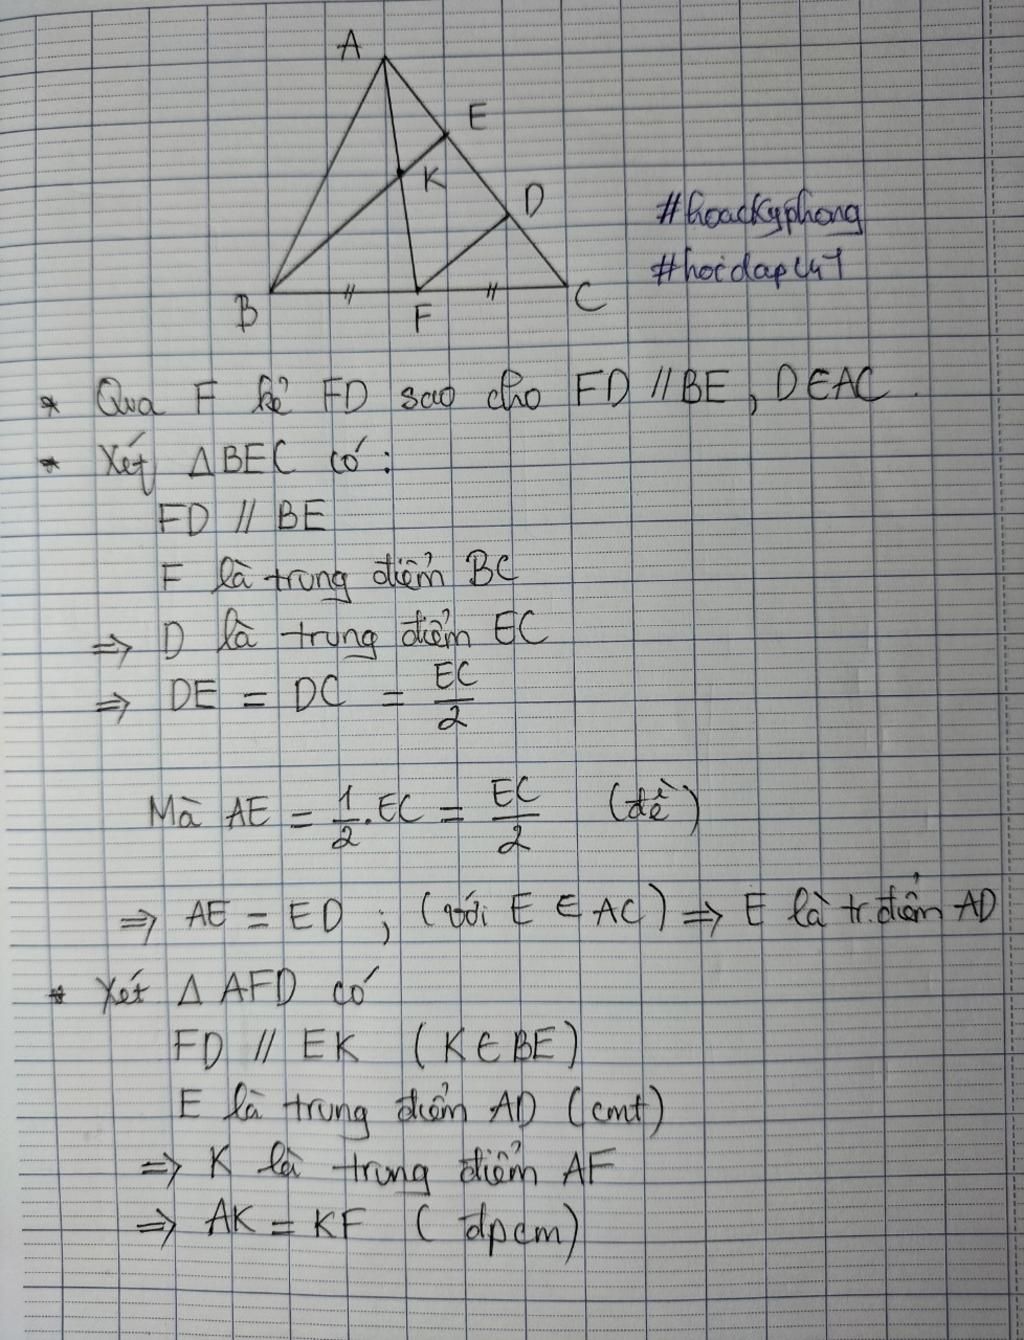 A
E
K
D
#hoackyphong
#hoidap247
B
F
C
* Qua F kẻ FD sao cho FD // BE, D ∈ AC.
* Xét ΔBEC có:
FD // BE
F là trung điểm BC
⇒ D là trung điểm EC
⇒ DE = DC = EC/2
Mà AE = 1/2 . EC = EC/2 (đề)
⇒ AE = ED ; (với E ∈ AC) ⇒ E là tr.điểm AD
* Xét Δ AFD có
FD // EK (K ∈ BE)
E là trung điểm AD (cmt)
⇒ K là trung điểm AF
⇒ AK = KF (đpcm)